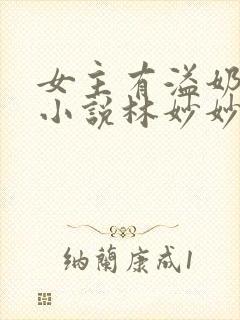 女主有溢奶
小说林妙妙
纳兰康成1